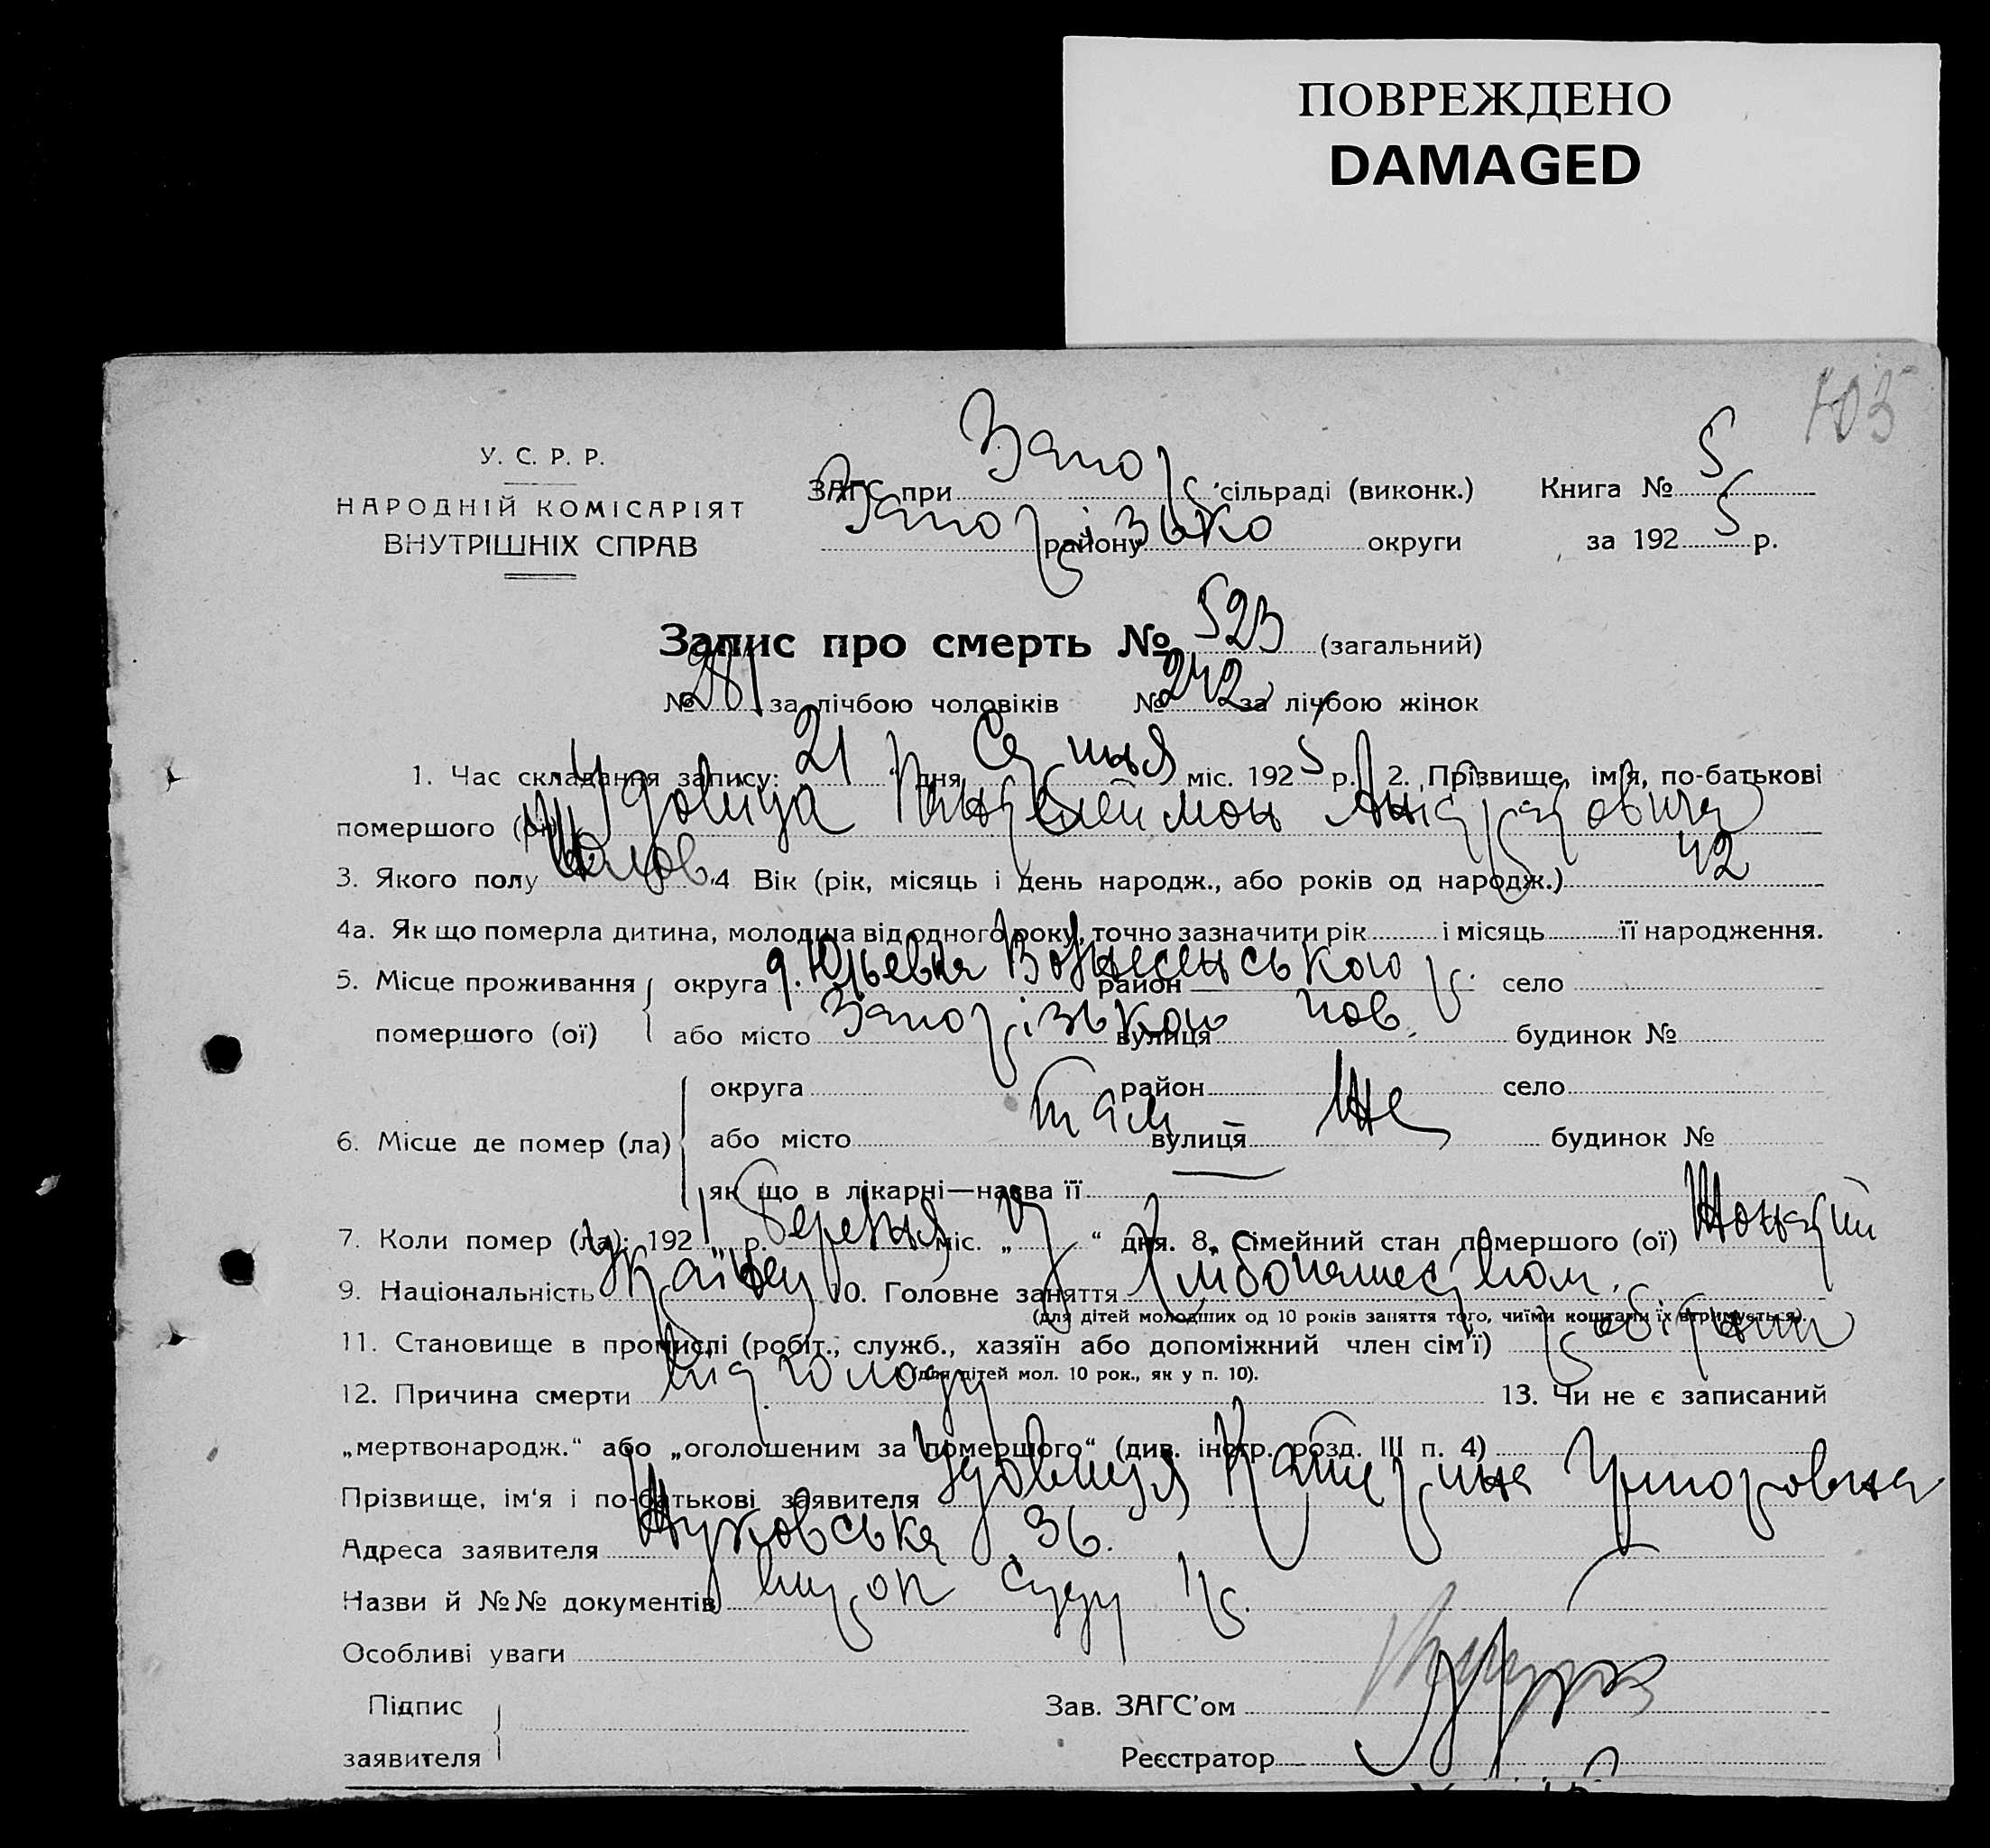 ПОВРЕЖДЕНО
DAMAGED
103
У. С. Р. Р.
НАРОДНІЙ КОМІСАРІЯТ
ВНУТРІШНІХ СПРАВ
ЗАГС при Запор сільраді (виконк.) Книга № 5
району Запорізько округи за 192 5 р.
Запис про смерть № 523 (загальний)
№ 281 за лічбою чоловіків № 242 за лічбою жінок
1. Час складання запису: 21 " дня Серпня міс. 192 5 р. 2. Прізвище, ім'я, по-батькові
помершого (ої) Удовиця Пантелеймон Андрієвич
3. Якого полу Чолов. 4 Вік (рік, місяць і день народж., або років од народж.) 42
4а. Як що померла дитина, молодша від одного року, точно зазначити рік і місяць її народження.
5. Місце проживання округа район село
с. Юльевка Вознесенською р.
помершого (ої) або місто Запорізькою пов. вулиця будинок №
округа район село
6. Місце де помер (ла) або місто там вулиця же будинок №
як що в лікарні—назва її —
7. Коли помер (ла): 192 1 р. березня міс. „ " дня. 8. Сімейний стан помершого (ої) Жонатий
9. Національність Українец 10. Головне заняття Хлібопашеством,
(для дітей молодших од 10 років заняття того, чиїми коштами їх втримується).
11. Становище в промислі (робіт., служб., хазяїн або допоміжний член сім'ї)
(для дітей мол. 10 рок., як у п. 10).
12. Причина смерти від голоду 13. Чи не є записаний
„мертвонародж." або „оголошеним за помершого" (див. інстр. розд. III п. 4)
Прізвище, ім'я і по-батькові заявителя Удовиця Катерина Григоровна
Адреса заявителя Жуковська 36.
Назви й №№ документів суду
Особливі уваги
Підпис Зав. ЗАГС'ом
заявителя Реєстратор